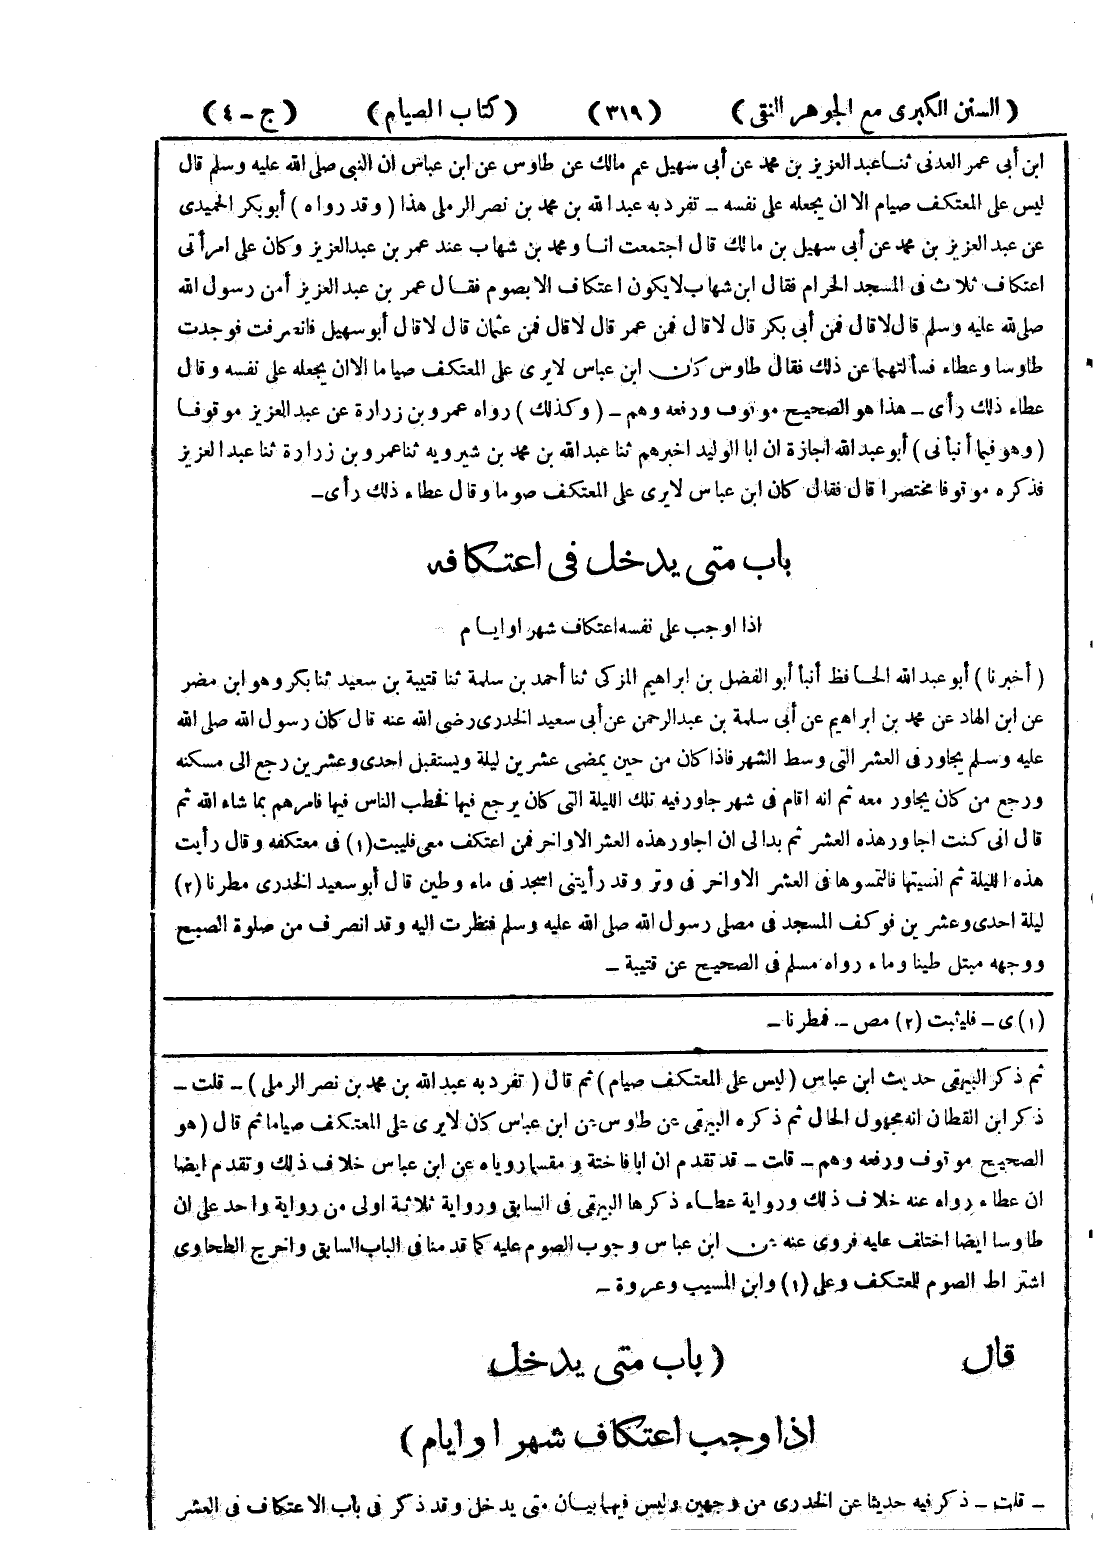 ( السنن الكبرى مع الجوهر النقى ) ( ٣١٩ ) ( كتاب الصيام ) ( ج - ٤ )
ابن أبى عمر العدنى ثنا عبد العزيز بن محمد عن أبى سهيل عم مالك عن طاوس عن ابن عباس ان النبى صلى الله عليه وسلم قال
ليس على المعتكف صيام الا ان يجعله على نفسه – تفرد به عبد الله بن محمد بن نصر الرملى هذا ( وقد رواه ) أبو بكر الحميدى
عن عبد العزيز بن محمد عن أبى سهيل بن مالك قال اجتمعت انا ومحمد بن شهاب عند عمر بن عبد العزيز وكان على امرأتى
اعتكاف ثلاث فى المسجد الحرام فقال ابن شهاب لا يكون اعتكاف الا بصوم فقال عمر بن عبد العزيز أمن رسول الله
صلى لله عليه وسلم قال لا قال فمن أبى بكر قال لا قال فمن عمر قال لا قال فمن عثمان قال لا قال أبو سهيل فانصرفت فوجدت
طاوسا وعطاء فسألتهما عن ذلك فقال طاوس كان ابن عباس لا يرى على المعتكف صياما الا ان يجعله على نفسه وقال
عطاء ذلك رأى – هذا هو الصحيح موقوف ورفعه وهم – ( وكذلك ) رواه عمرو بن زرارة عن عبد العزيز موقوفا
( وهو فيما أنبأنى ) أبو عبد الله اجازة ان ابا الوليد اخبرهم ثنا عبد الله بن محمد بن شيرويه ثنا عمرو بن زرارة ثنا عبد العزيز
فذكره موقوفا مختصرا قال فقال كان ابن عباس لا يرى على المعتكف صوما وقال عطاء ذلك رأى–
باب متى يدخل فى اعتكافه
اذا اوجب على نفسه اعتكاف شهر او ايام
( أخبرنا ) أبو عبد الله الحافظ أنبأ أبو الفضل بن ابراهيم المزكى ثنا أحمد بن سلمة ثنا قتيبة بن سعيد ثنا بكر وهو ابن مضر
عن ابن الهاد عن محمد بن ابراهيم عن أبى سلمة بن عبد الرحمن عن أبى سعيد الخدرى رضى الله عنه قال كان رسول الله صلى الله
عليه وسلم يجاور فى العشر التى وسط الشهر فاذا كان من حين يمضى عشرين ليلة ويستقبل احدى وعشرين رجع الى مسكنه
ورجع من كان يجاور معه ثم انه اقام فى شهر جاور فيه تلك الليلة التى كان يرجع فيها فخطب الناس فيها فامرهم بما شاء الله ثم
قال انى كنت اجاور هذه العشر ثم بدا لى ان اجاور هذه العشر الاواخر فمن اعتكف معى فليبت (١) فى معتكفه وقال رأيت
هذه الليلة ثم انسيتها فالتمسوها فى العشر الاواخر فى وتر وقد رأيتنى اسجد فى ماء وطين قال أبو سعيد الخدرى مطرنا (٢)
ليلة احدى وعشرين فوكف المسجد فى مصلى رسول الله صلى الله عليه وسلم فنظرت اليه وقد انصرف من صلوة الصبح
ووجهه مبتل طينا وماء رواه مسلم فى الصحيح عن قتيبة –
(١) ى – فليثبت (٢) مص – فمطرنا –
ثم ذكر البيهقى حديث ابن عباس ( ليس على المعتكف صيام ) ثم قال ( تفرد به عبد الله بن محمد بن نصر الرملى ) – قلت –
ذكر ابن القطان انه مجهول الحال ثم ذكره البيهقى عن طاوس عن ابن عباس كان لا يرى على المعتكف صياما ثم قال ( هو
الصحيح موقوف ورفعه وهم – قلت – قد تقدم ان ابا فاختة و مقسما روياه عن ابن عباس خلاف ذلك وتقدم ايضا
ان عطاء رواه عنه خلاف ذلك ورواية عطاء ذكرها البيهقى فى السابق ورواية ثلاثة اولى من رواية واحد على ان
طاوسا ايضا اختلف عليه فروى عنه عن ابن عباس وجوب الصوم عليه كما قدمنا فى الباب السابق واخرج الطحاوى
اشتراط الصوم للمعتكف وعلى (١) وابن المسيب وعروة –
قال ( باب متى يدخل
اذا وجب اعتكاف شهر او ايام )
– قلت – ذكر فيه حديثا عن الخدرى من وجهين وليس فيهما بيان متى يدخل وقد ذكر فى باب الاعتكاف فى العشر